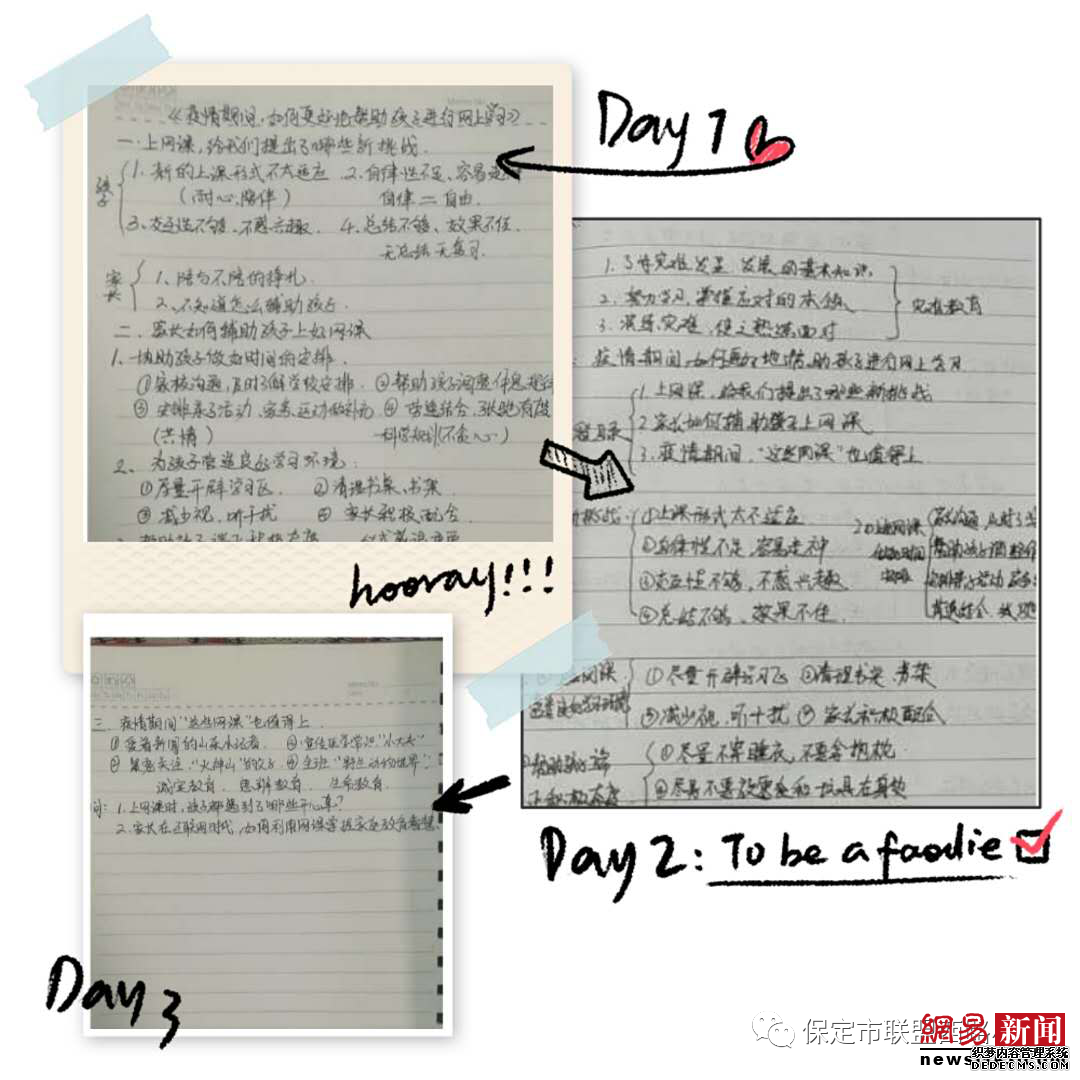 Day 1
《疫情期间,如何更好地帮助孩子进行网上学习》
一.上网课,给我们提出了哪些新挑战.
孩子
1、新的上课形式不太适应 2、自律性不足、容易走
(耐心.陪伴) 自律=自由.
3、交互性不够、不感兴趣. 4、总结不够、效果不佳.
无总结无复习.
家长
1、陪与不陪的挣扎.
2、不知道怎么辅助孩子.
二、家长如何辅助孩子上好网课
1、协助孩子做好时间的安排.
①家校沟通,及时了解学校安排. ②帮助孩子调整作息规律
③安排亲子活动、家务、运动做补充 ④劳逸结合,张弛有度
(共情) 科学规划(不贪心)
2、为孩子营造良好学习环境:
①尽量开辟学习区. ②清理书桌、书架.
③减少视、听干扰 ④家长积极配合.
hooray!!!
1.了解灾难发生、发展的基本知识
2.努力学习,掌握应对的本领
3.演练灾难,使之熟练面对
灾难教育
疫情期间,如何更好地帮助孩子进行网上学习
1上网课,给我们提出了哪些新挑战
2家长如何辅助孩子上网课
3.疫情期间,"这些网课"也值得上
挑战
①上课形式太不适应
②自律性不足,容易走神
③交互性不够,不感兴趣
④总结不够、效果不佳.
①尽量开辟学习区 ②清理书桌、书架
③减少视、听干扰 ④家长积极配合
①尽量不穿睡衣,不要含枕枕
②尽量不要放零食和玩具在身边
Day 2: To be a foodie
三.疫情期间"这些网课"也值得上.
①爱看新闻的山东小记者. ②宣传医学常识"小大夫"
③聚焦关注."火神山"的孩子 ④走进"野生动物世界".
诚实教育. 思辨教育. 生命教育.
问:1.上网课时,孩子都遇到了哪些开心事?
2.家长在互联网时代,如何利用网课掌握家庭教育智慧.
Day 3
保定市联盟西路
網易 新闻
news.
织梦内容管理系统
DEDECMS.COM